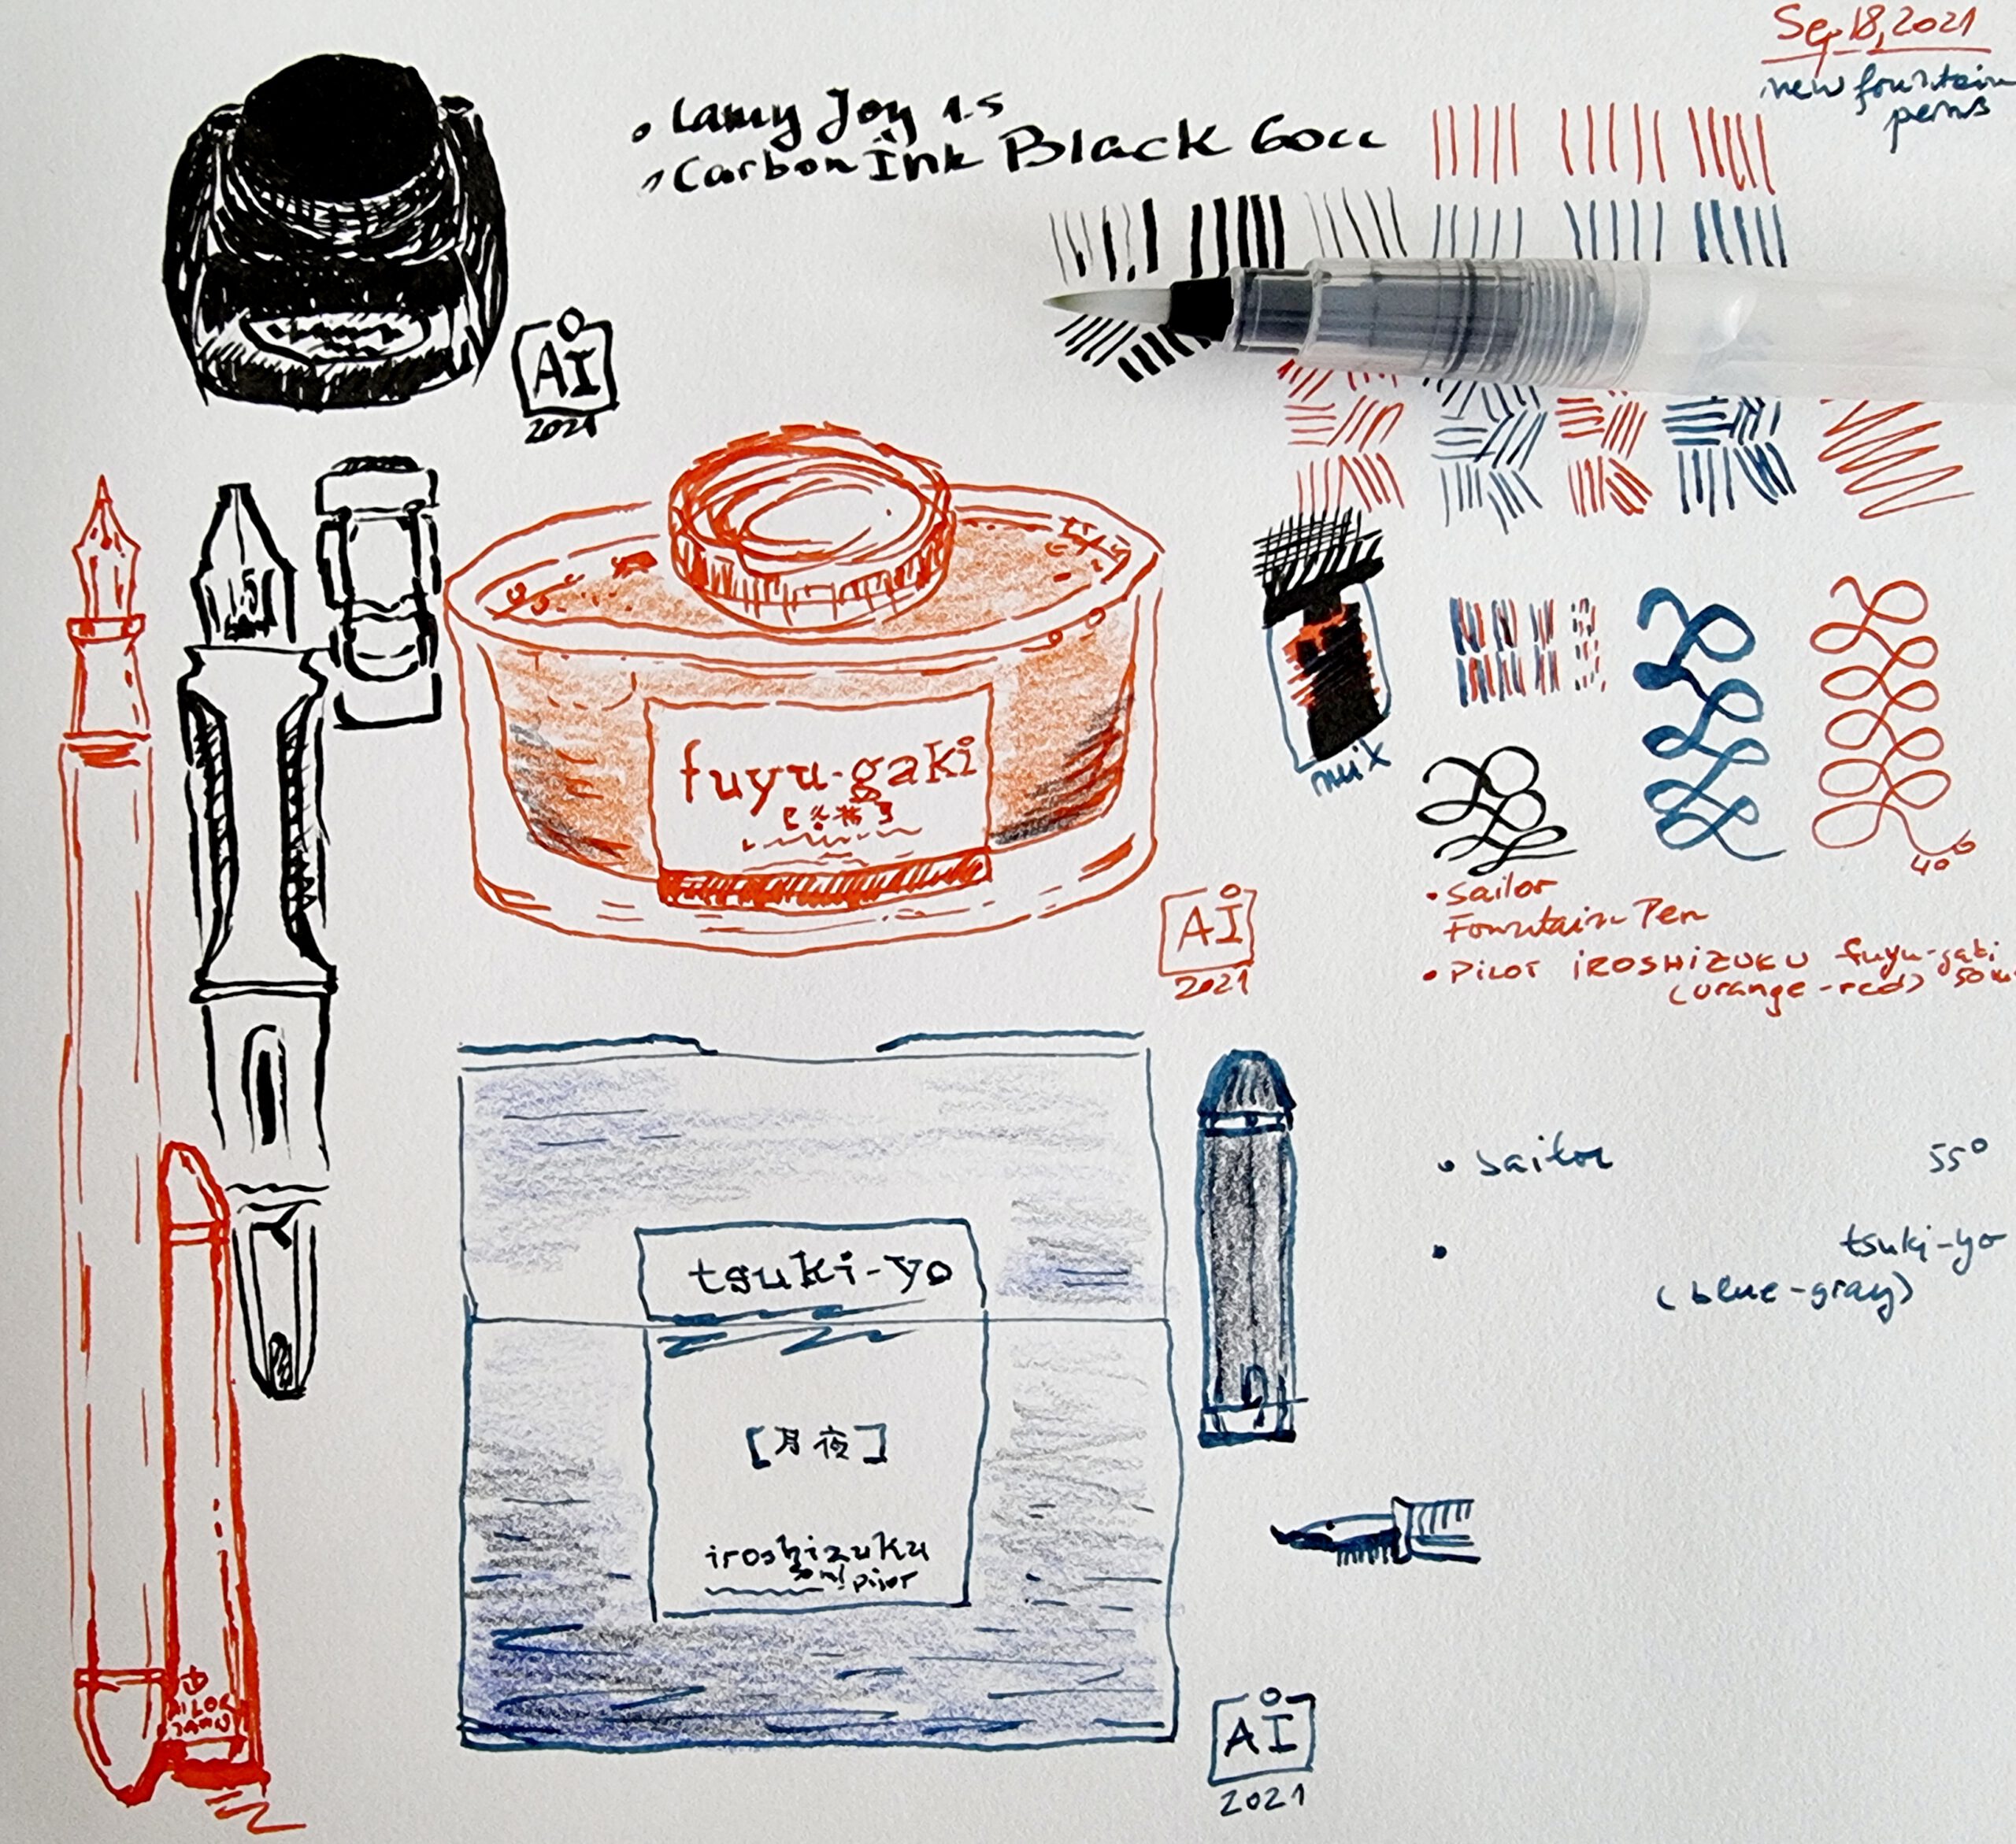 Sep 18, 2021
new fountain
pens
• Lamy Joy 1.5
• Carbon Ink Black 60cc
AI
2021
fuyu-gaki
mix
40°
• Sailor
Fountain Pen
• Pilot IROSHIZUKU fuyu-gaki
(orange-red) 50
AI
2021
• Sailor 55°
• tsuki-yo
(blue-gray)
tsuki-yo
[月夜]
iroshizuku
50ml pilot
AI
2021